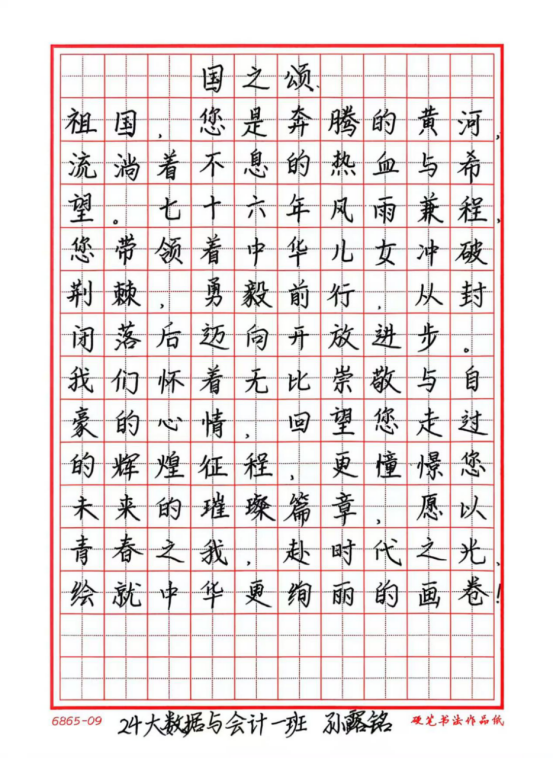 国之颂
祖国，您是奔腾的黄河，
流淌着不息的热血与希
望。七十六年风雨兼程，
您带领着中华儿女冲破
荆棘，勇毅前行，从封
闭落后迈向开放进步。
我们怀着无比崇敬与自
豪的心情，回望您走过
的辉煌征程，更憧憬您
未来的璀璨篇章，愿以
青春之我，赴时代之光，
绘就中华更绚丽的画卷！
6865-09 24大数据与会计一班 孙露铭 硬笔书法作品纸